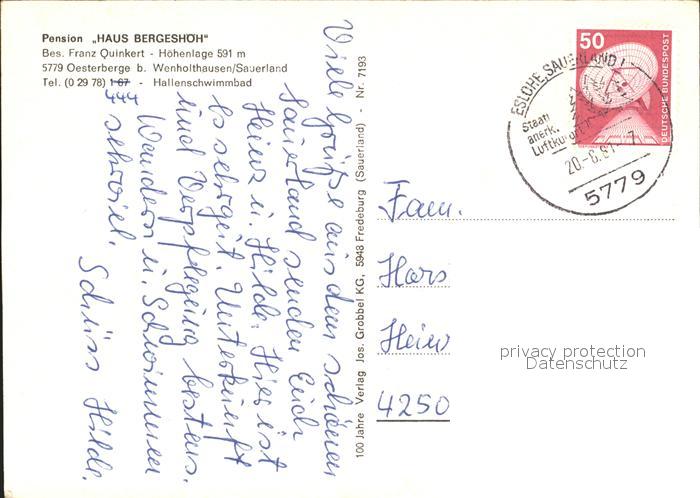 Pension „HAUS BERGESHÖH"
Bes. Franz Quinkert - Höhenlage 591 m
5779 Oesterberge b. Wenholthausen/Sauerland
Tel. (0 29 78) 1 67 - Hallenschwimmbad
Viele Grüße aus dem schönen
Sauerland senden Euch
Heinz u. Hilde. Hier ist
es sehr gut. Unterkunft
und Verpflegung bestens.
Wandern u. Schwimmen
sehr viel.
Schüss Hilde.
100 Jahre Verlag Jos. Grobbel KG, 5948 Fredeburg (Sauerland) - Nr. 7193
50
DEUTSCHE BUNDESPOST
ESLOHE, SAUERLAND 1
Staatl.
anerk.
Luftkurort
20.-8.81- 7
5779
Fam.
Hans
4250
privacy protection
Datenschutz